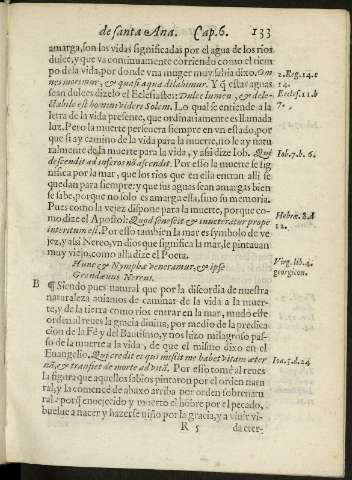 de santa Ana. Cap. 6. 133
amarga, son las vidas significadas por el agua de los rios
dulce, y que va continuamente corriendo como el tiem
po de la vida, por donde vna muger muy sabia dixo. Om
nes morimur, & quasi aqua dilabimur. Y q̃ estas aguas
sean dulces dizelo el Eclesiastes: Dulce lumen, & dele-
ctabile est hominı videre Solem. Lo qual se entiende a la
letra de la vida presente, que ordinariamente es llamada
luz. Pero la muerte perseuera siempre en vn estado, por
que si ay camino de la vida para la muerte, no le ay natu
ralmente de la muerte para la vida, y assi dize Iob. Qui
descendit ad inferos nõ ascendit. Por esso la muerte se sig
nifica por la mar, que los rios que en ella entran alli se
quedan para siempre: y que sus aguas sean amargas bien
se sabe, porque no solo es amarga ella, sino su memoria.
Pues como la vejez dispone para la muerte, porque co-
mo dize el Apostol: Quod senescit & inueteratur prope
interitum est. Por esso tambien la mar es symbolo de ve
jez, y assi Nereo, vn dios que significa la mar, le pintauan
muy viejo, como alla dize el Poeta.
Hunc & Nymphæ veneramur, & ipse
Grandæuus Nereus.
B ¶ Siendo pues natural que por la discordia de nuestra
naturaleza auiamos de caminar de la vida a la muer-
te, y de la tierra como rios entrar en la mar, mudò este
orden al reues la gracia diuina, por medio de la predica
cion de la Fè y del Bautismo, y nos hizo milagroso pas-
so de la muerte a la vida, de que el mismo dixo en el
Euangelio, Qui credit ei qui misit me habet vitam æter
nã, & transiet de morte ad vitã. Por esso tomè al reues
la figura que aquellos sabios pintaron por el orden natu
ral, y la comencè de abaxo arriba por orden sobrenatu
ral: porq̃ enuejecido y muerto el hõbre por el pecado,
buelue a nacer y hazerse niño por la gracia, y a viuir vi-
R 5 da eter-
2. Reg. 14. c
14.
Eccles. 11. b
7.
Iob. 7. b. 6.
Hebre. 8. d
12.
Virg. lib. 4.
georgicon.
Ioa. 5. d. 24